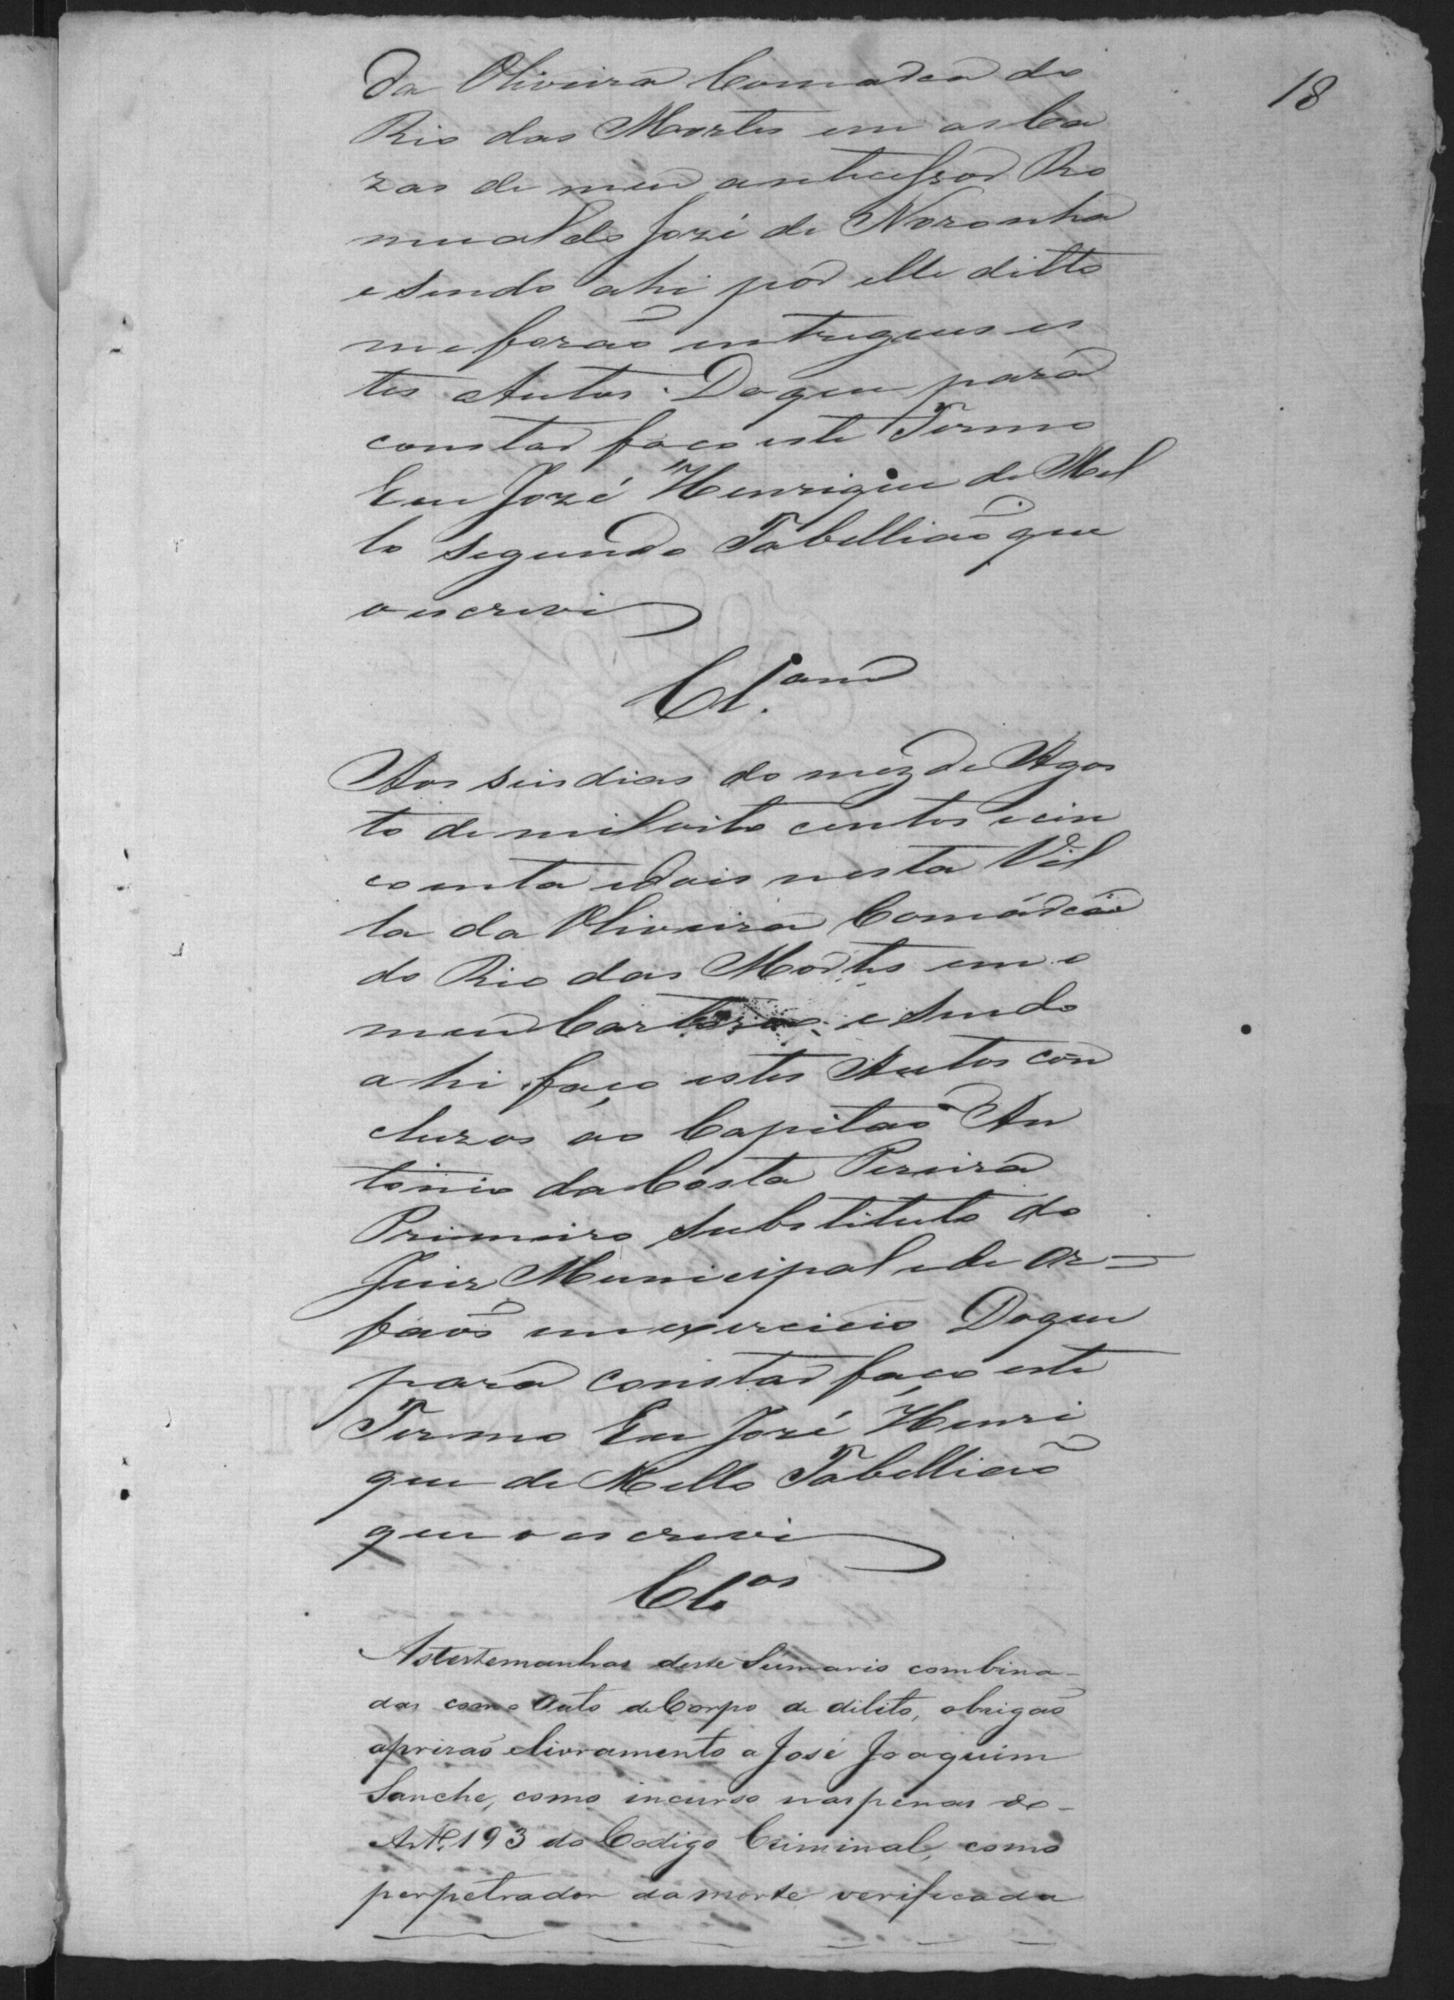 18
da Oliveira Comarca do
Rio das Mortes em as Ca
zas de meu antecessor Ro
mualdo Jozé de Noronha
e sendo ahi por elle ditto
me forão entregues es
tes Autos. Do que para
constar faço este Termo
Eu Jozé Henrique de Mel
lo segundo Tabellião que
o escrevi
Cl.am
Aos seis dias do mez de Agos
to de mil oito centos e cin
coenta e dois nesta Vil
la da Oliveira Comárca
do Rio das Mortes em o
meu Cartorio e sendo
ahi faço estes Autos con
cluzos ao Capitão An
tonio da Costa Pereira
Primeiro Substituto do
Juiz Municipal e de Or=
faõs em exercicio Do que
para constar faço este
Termo Eu Jozé Henri
que de Mello Tabellião
que o escrevi
Cl.os
As testemunhas deste Sumario combina-
das com o Auto de Corpo de dilito, obrigaõ
a prizaõ e livramento a José Joaquim
Sanche, como incurso nas penas do-
Art. 193 do Codigo Criminal, como
perpetrador da morte verificada